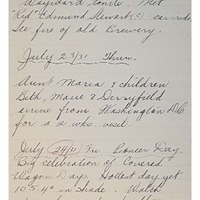 Wayward
"Kid" Edmund Stewart (?) car ride
See fire of old Brewery.
July 23/31 Thur.
Aunt Maria & children
Beth, Marie & Derryfield
arrive from Washington D.C.
for a 2 wks. visit.
July 24/31 Fri Pioneer Day.
Big celebration of Covered
Wagon Days. Hottest day yet
105.4° in shade. Watch